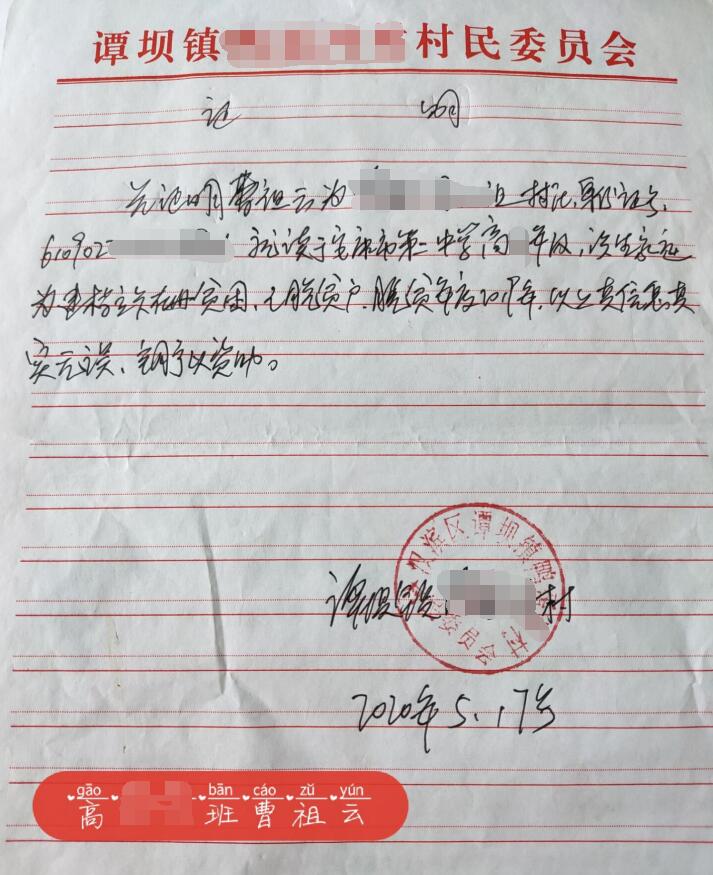 谭坝镇 村民委员会
证 明
兹证明曹祖云为 村民,身份证号
610902 就读于安康市第二中学高 年级,该生家庭
为建档立卡在册贫困,已脱贫户,脱贫年度2019年,以上信息真
实无误、望予以资助。
汉滨区谭坝镇 村 委员会
谭坝镇 村
2020年5.17号
gāo bān cáo zǔ yún
高 班曹祖云